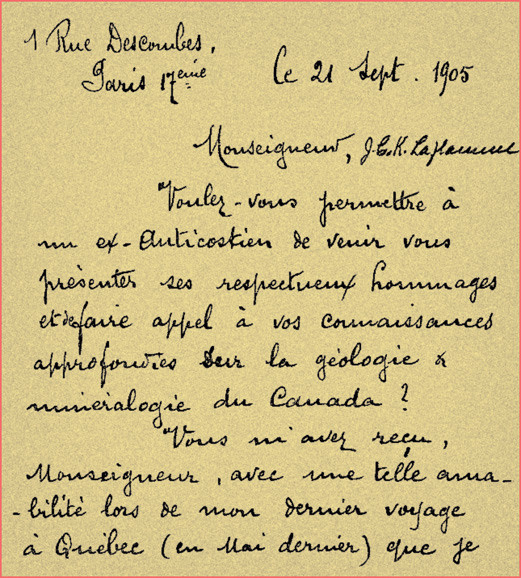 1 Rue Descombes,
Paris 17ème
le 21 Sept. 1905
Monseigneur, J.C.K. Laflamme
Voulez-vous permettre à
un ex-Anticostien de venir vous
présenter ses respectueux hommages
et de faire appel à vos connaissances
approfondies sur la géologie &
minéralogie du Canada ?
Vous m'avez reçu,
Monseigneur, avec une telle ama-
-bilité lors de mon dernier voyage
à Québec (en Mai dernier) que je